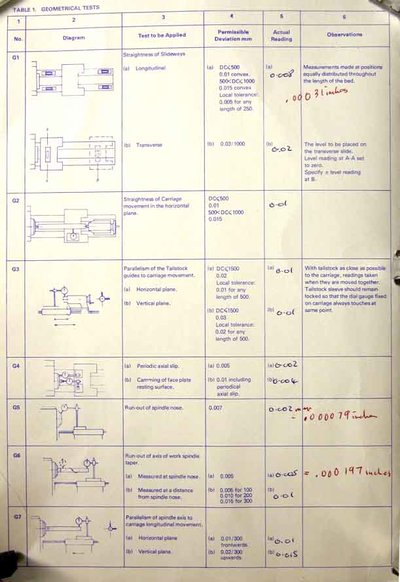 TABLE 1. GEOMETRICAL TESTS
1 2 3 4 5 6
No. Diagram Test to be Applied Permissible Deviation mm Actual Reading Observations
G1
Straightness of Slideways
(a) Longitudinal
(a) DC≤500
0.01 convex.
500<DC≤1000
0.015 convex
Local tolerance:
0.005 for any
length of 250.
(a)
0.008
.00031 inches
Measurements made at positions
equally distributed throughout
the length of the bed.
(b) Transverse
(b) 0.03/1000
(b)
0.02
The level to be placed on
the transverse slide.
Level reading at A-A set
to zero.
Specify ± level reading
at B.
G2
Straightness of Carriage
movement in the horizontal
plane.
DC≤500
0.01
500<DC≤1000
0.015
0.01
G3
Parallelism of the Tailstock
guides to carriage movement.
(a) Horizontal plane.
(b) Vertical plane.
(a) DC≤1500
0.02
Local tolerance:
0.01 for any
length of 500.
(b) DC≤1500
0.03
Local tolerance:
0.02 for any
length of 500.
(a) 0.01
(b) 0.01
With tailstock as close as possible
to the carriage, readings taken
when they are moved together.
Tailstock sleeve should remain
locked so that the dial gauge fixed
on carriage always touches at
same point.
G4
(a) Periodic axial slip.
(b) Camming of face plate
resting surface.
(a) 0.005
(b) 0.01 including
periodical
axial slip.
(a) 0.002
(b) 0.004
G5
Run-out of spindle nose.
0.007
0.002
= .000079 inches
G6
Run-out of axis of work spindle
taper.
(a) Measured at spindle nose.
(b) Measured at a distance
from spindle nose.
(a) 0.005
(b) 0.006 for 100
0.010 for 200
0.016 for 300
(a) 0.005
= .000197 inches
(b)
0.01
G7
Parallelism of spindle axis to
carriage longitudinal movement.
(a) Horizontal plane
(b) Vertical plane.
(a) 0.01/300
frontwards.
(b) 0.02/300
upwards.
(a) 0.01
(b) 0.015